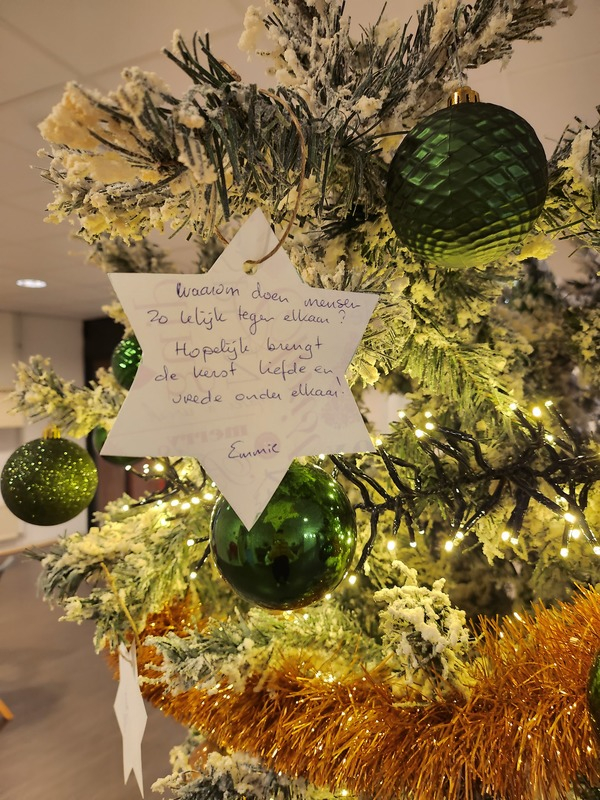 Waarom doen mensen
zo lelijk tegen elkaar?
Hopelijk brengt
de kerst liefde en
vrede onder elkaar.
Emmie